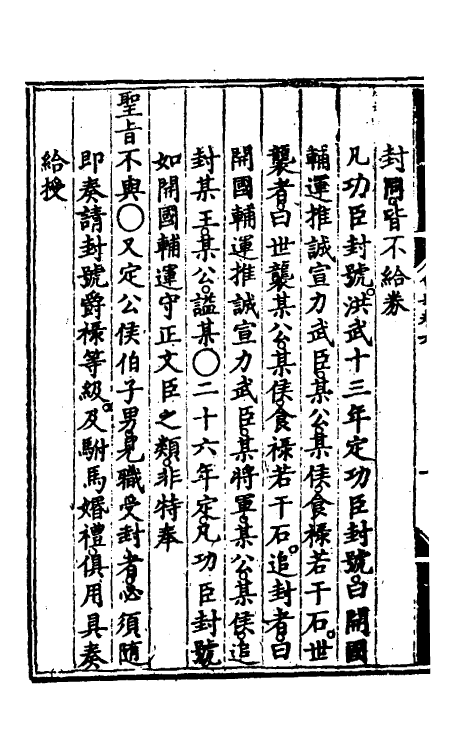 封爵皆不給券
凡功臣封號。洪武十三年定功臣封號。曰開國
輔運推誠宣力武臣。某公某侯。食祿若干石。世
襲者。曰世襲某公某侯。食祿若干石。追封者。曰
開國輔運推誠宣力武臣。某將軍。某公某侯。追
封某王。某公。謚某〇二十六年定。凡功臣封號
如開國輔運守正文臣之類。非特奉
聖旨不與〇又定公侯伯子男。見職受封者。必須隨
即奏請封號爵祿等級。及駙馬婚禮。俱用具奏
給授